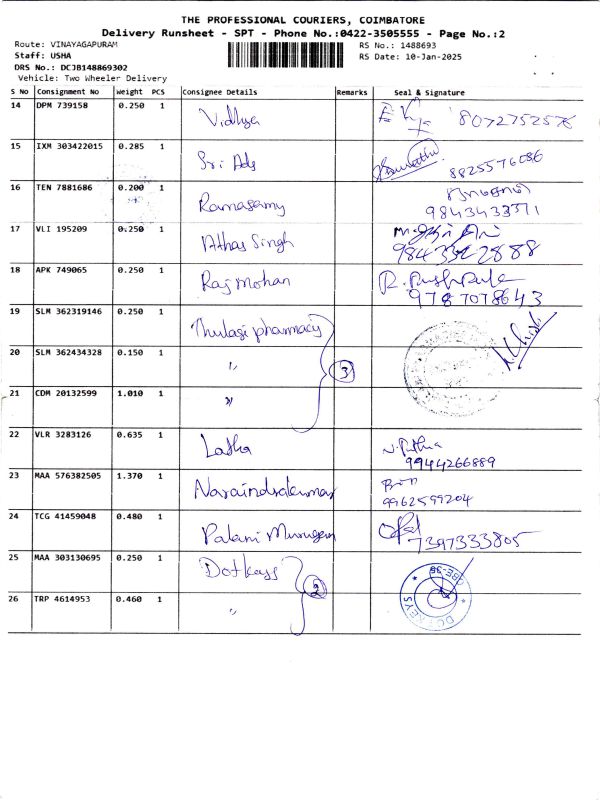 THE PROFESSIONAL COURIERS, COIMBATORE
Delivery Runsheet - SPT - Phone No.:0422-3505555 - Page No.:2
Route: VINAYAGAPURAM
Staff: USHA
DRS No.: DCJB148869302
Vehicle: Two Wheeler Delivery
RS No.: 1488693
RS Date: 10-Jan-2025
S No Consignment No Weight PCS Consignee Details Remarks Seal & Signature
14 DPM 739158 0.250 1 Vidhya 8072752576
15 IXM 303422015 0.285 1 Sri Ads 8825576086
16 TEN 7881686 0.200 1 Ramasamy 9843433371
17 VLI 195209 0.250 1 Athas Singh
18 APK 749065 0.250 1 Raj Mohan 9787078643
19 SLM 362319146 0.250 1 Thulasi pharmacy
20 SLM 362434328 0.150 1 " 3
21 CDM 20132599 1.010 1 "
22 VLR 3283126 0.635 1 Latha 9944266889
23 MAA 576382505 1.370 1 Naraindrakumar 9962599204
24 TCG 41459048 0.480 1 Palani Murugan 7397333805
25 MAA 303130695 0.250 1 Dotkeys 2
26 TRP 4614953 0.460 1 " DOT KEYS